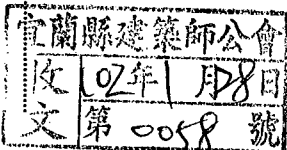 宜蘭縣建築師公會
收文
102年1月28日
第0058號